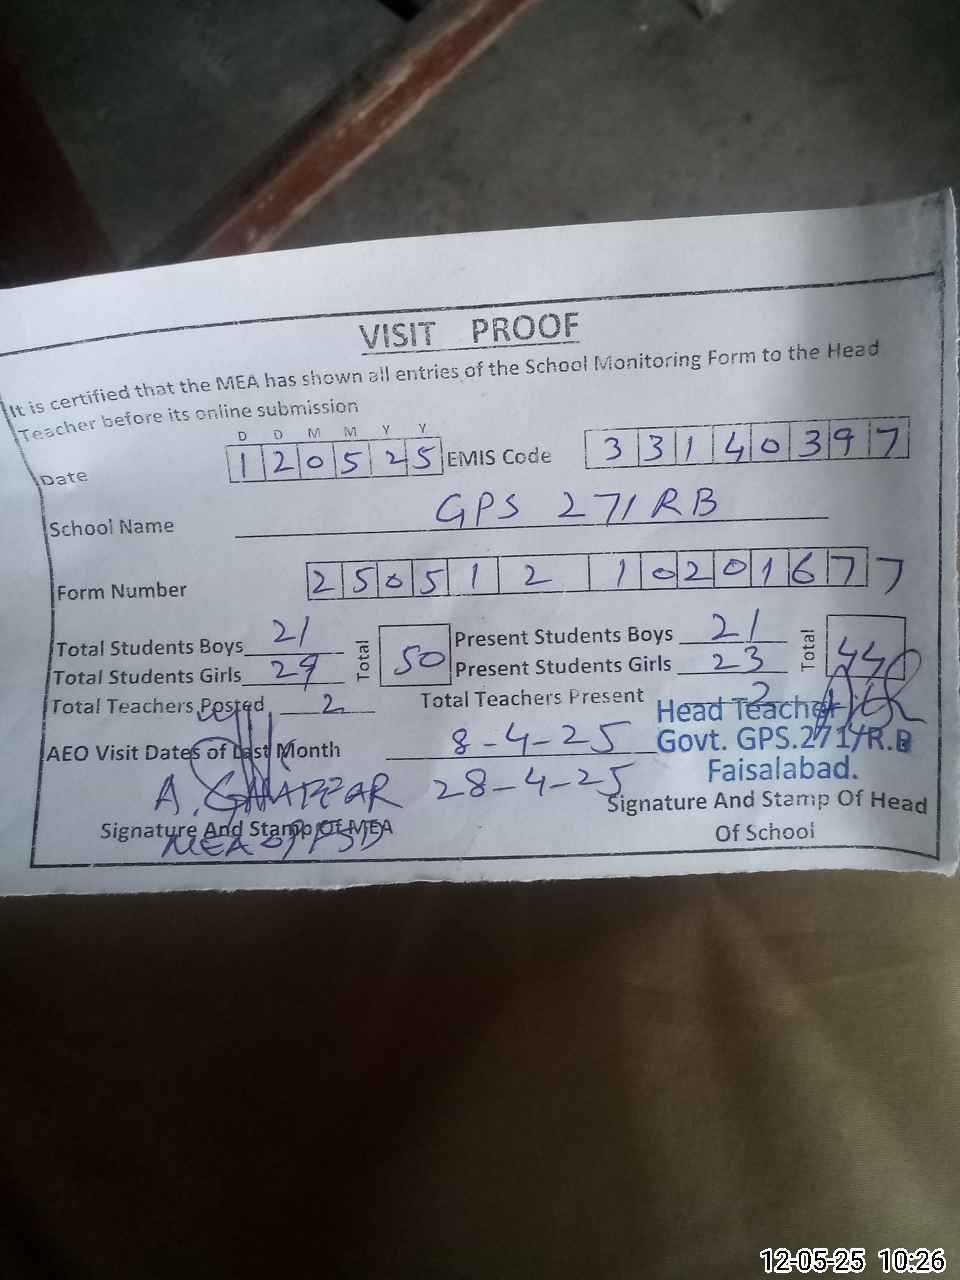 VISIT PROOF
It is certified that the MEA has shown all entries of the School Monitoring Form to the Head
Teacher before its online submission
D D M M Y Y
Date 120525 EMIS Code 33140397
School Name GPS 271 RB
Form Number 25051210201677
Total Students Boys 21 Total 50 Present Students Boys 21 Total 44
Total Students Girls 29 Present Students Girls 23
Total Teachers Posted 2 Total Teachers Present 2
Head Teacher
AEO Visit Dates of Last Month 8-4-25
Govt. GPS.271/R.B
28-4-25
Faisalabad.
A. GHAFFAR
Signature And Stamp Of MEA
MEA of PSD
Signature And Stamp Of Head
Of School
12-05-25 10:26